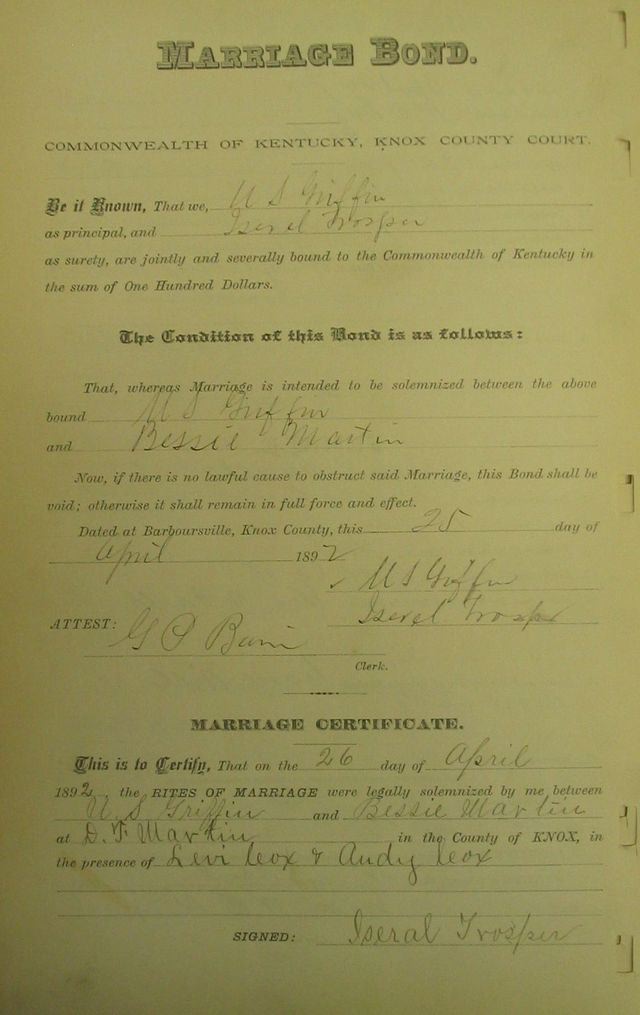 MARRIAGE BOND.
COMMONWEALTH OF KENTUCKY, KNOX COUNTY COURT.
Be it Known, That we, U S Griffin
as principal, and Iserel Trosper
as surety, are jointly and severally bound to the Commonwealth of Kentucky in
the sum of One Hundred Dollars.
The Condition of this Bond is as follows:
That, whereas Marriage is intended to be solemnized between the above
bound U S Griffin
and Bessie Martin
Now, if there is no lawful cause to obstruct said Marriage, this Bond shall be
void; otherwise it shall remain in full force and effect.
Dated at Barboursville, Knox County, this 25 day of
April 1892
U S Griffin
ATTEST: Iserel Trosper
G P
Clerk.
MARRIAGE CERTIFICATE.
This is to Certify, That on the 26 day of April
1892, the RITES OF MARRIAGE were legally solemnized by me between
U. S Griffin and Bessie Martin
at D. F Martin in the County of KNOX, in
the presence of Levi Cox & Andy Cox
SIGNED: Iseral Trosper